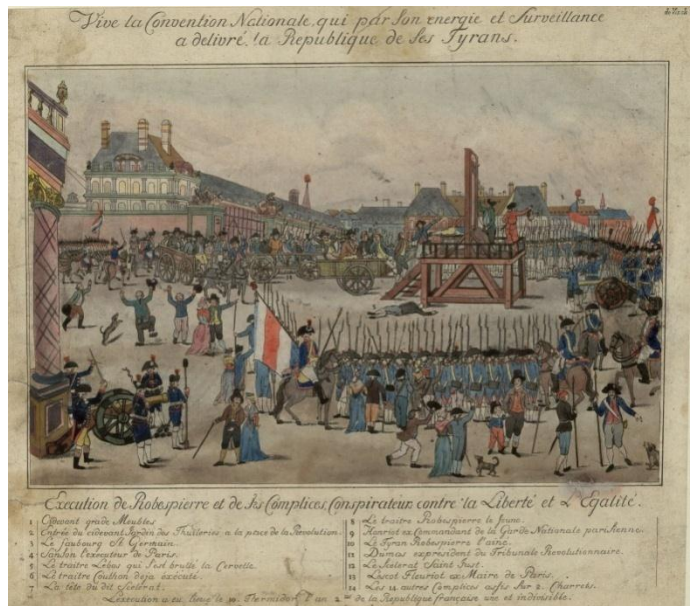 Vive la Convention Nationale, qui par son energie et Surveillance
a delivré la Republique de ses Tyrans.
Execution de Robespierre et de ses Complices, Conspirateurs contre la Liberté et L'Egalité.
1 Cidevant garde Meubles
2 Entrée du cidevant Jardin des Thuileries a la place de la Revolution.
3 Le faubourg St Germain.
4 Sanson l'executeur de Paris.
5 Le traitre Lebas qui s'est brullé la Cervelle.
6 Le traitre Couthon deja exécuté.
7 La tête du dit scelerat.
8 Le traitre Robespierre le Jeune.
9 Hanriot ex Commandant de la Garde Nationale parisienne.
10 Le Tyran Robespierre l'ainé.
11 Dumas exprésident du Tribunale Revolutionnaire.
12 Le Scelerat Saint Just.
13 Liscot Fleuriot ex Maire de Paris.
14 Les 14 autres Complices assis sur 2. Charrets.
L'éxecution a eu lieu le 10 Thermidor l'an 2me de la Republique française une et indivisible.